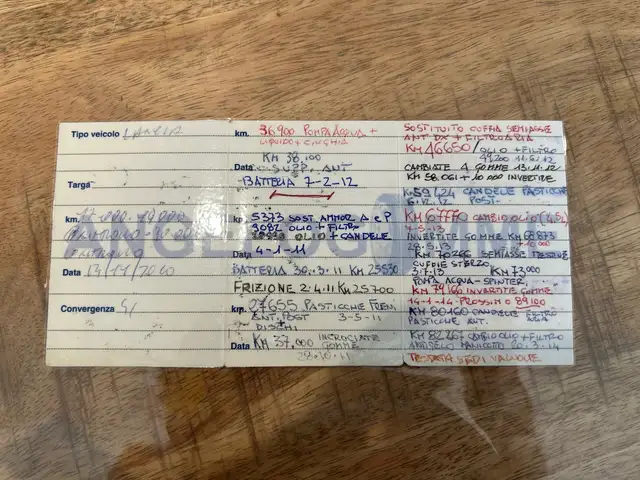 Tipo veicolo LANCIA
Targa
km.
Data 13/11/2010
Convergenza SI
km. 36900 POMPA ACQUA +
LIQUIDO + CINGHIA
KM 38.100
Data SUPP. ANT
BATTERIA 7-2-12
km. 5373 SOST. AMMOR A e P
9082 OLIO + FILTRO
OLIO + CANDELE
Data 4-1-11
BATTERIA 30.3.11 KM 25530
FRIZIONE 2.4.11 KM 25700
km. 27655 PASTICCHE FRENI
ANT. POST 3-5-11
DISCHI
Data KM 37.000 INCROCIATE
GOMME
28.10.11
SOSTITUITO CUFFIA SEMIASSE
ANT DX + FILTRO ARIA
KM 46650 / OLIO + FILTRO
49200 11.6.12
CAMBIATE 4 GOMME 13.11.12
KM 58.061 + 10.000 INVERTIRE
K 59124 CANDELE PASTICCHE
6.12.12 POST.
KM 67770 CAMBIO OLIO (4,5L)
5-13
INVERTITE GOMME KM 68873
28.5.13 + 10.000
KM 70266 SEMIASSE DESTRO
CUFFIE STERZO
3.7.13 KM 73000
POMPA ACQUA - SPINTER.
KM 79160 INVERTITE GOMME
14-1-14 PROSSIMO 89100
KM 80160 CANDELE FILTRO
PASTICCHE ANT.
KM 82267 CAMBIO OLIO + FILTRO
MANICOTTO 20.3.14
TESTATA SEDI VALVOLE